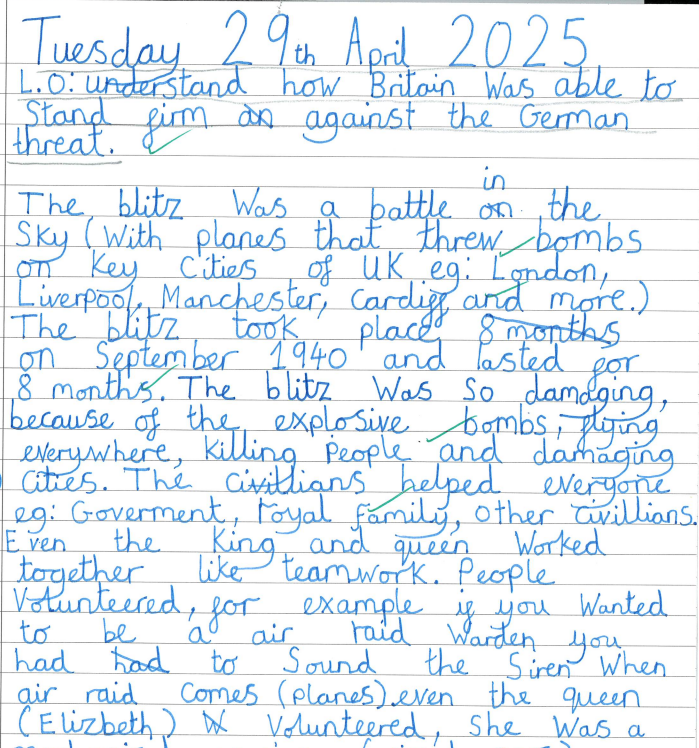 Tuesday 29th April 2025
L.O: understand how Britain was able to
Stand firm an against the German
threat.
in
The blitz was a battle on the
Sky (With planes that threw bombs
on key Cities of UK eg: London,
Liverpool, Manchester, Cardiff and more.)
The blitz took place 8 months
on September 1940 and lasted for
8 months. The blitz was so damaging,
because of the explosive bombs, flying
everywhere, killing people and damaging
cities. The civillians helped everyone
eg: Goverment, royal family, other civillians.
Even the King and queen worked
together like teamwork. People
Volunteered, for example if you wanted
to be a air raid warden you
had had to Sound the Siren when
air raid comes (planes).even the queen
(Elizbeth) W Volunteered, she was a